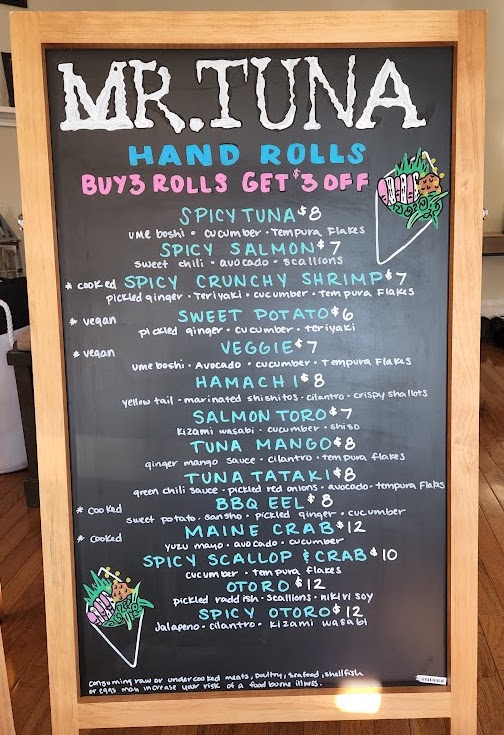 MR.TUNA
HAND ROLLS
BUY 3 ROLLS GET $3 OFF
SPICY TUNA $8
ume boshi • cucumber • Tempura Flakes
SPICY SALMON $7
sweet chili • avocado • scallions
* cooked SPICY CRUNCHY SHRIMP $7
pickled ginger • Teriyaki • cucumber • tempura Flakes
* vegan SWEET POTATO $6
pickled ginger • cucumber • teriyaki
* vegan VEGGIE $7
ume boshi • Avocado • cucumber • Tempura Flakes
HAMACHI $8
yellow tail • marinated shishitos • cilantro • crispy shallots
SALMON TORO $7
Kizami wasabi • cucumber • shiso
TUNA MANGO $8
ginger mango sauce • cilantro • tempura flakes
TUNA TATAKI $8
green chili sauce • pickled red onions • avocado • tempura Flakes
* cooked BBQ EEL $8
sweet potato • sansho • pickled ginger • cucumber
* cooked MAINE CRAB $12
yuzu mayo • avocado • cucumber
SPICY SCALLOP & CRAB $10
cucumber • tempura flakes
OTORO $12
pickled raddish • scallions • nikiri soy
SPICY OTORO $12
Jalapeno • cilantro • Kizami wasabi
consuming raw or undercooked meats, poultry, seafood, shellfish
or eggs may increase your risk of a food borne illness.